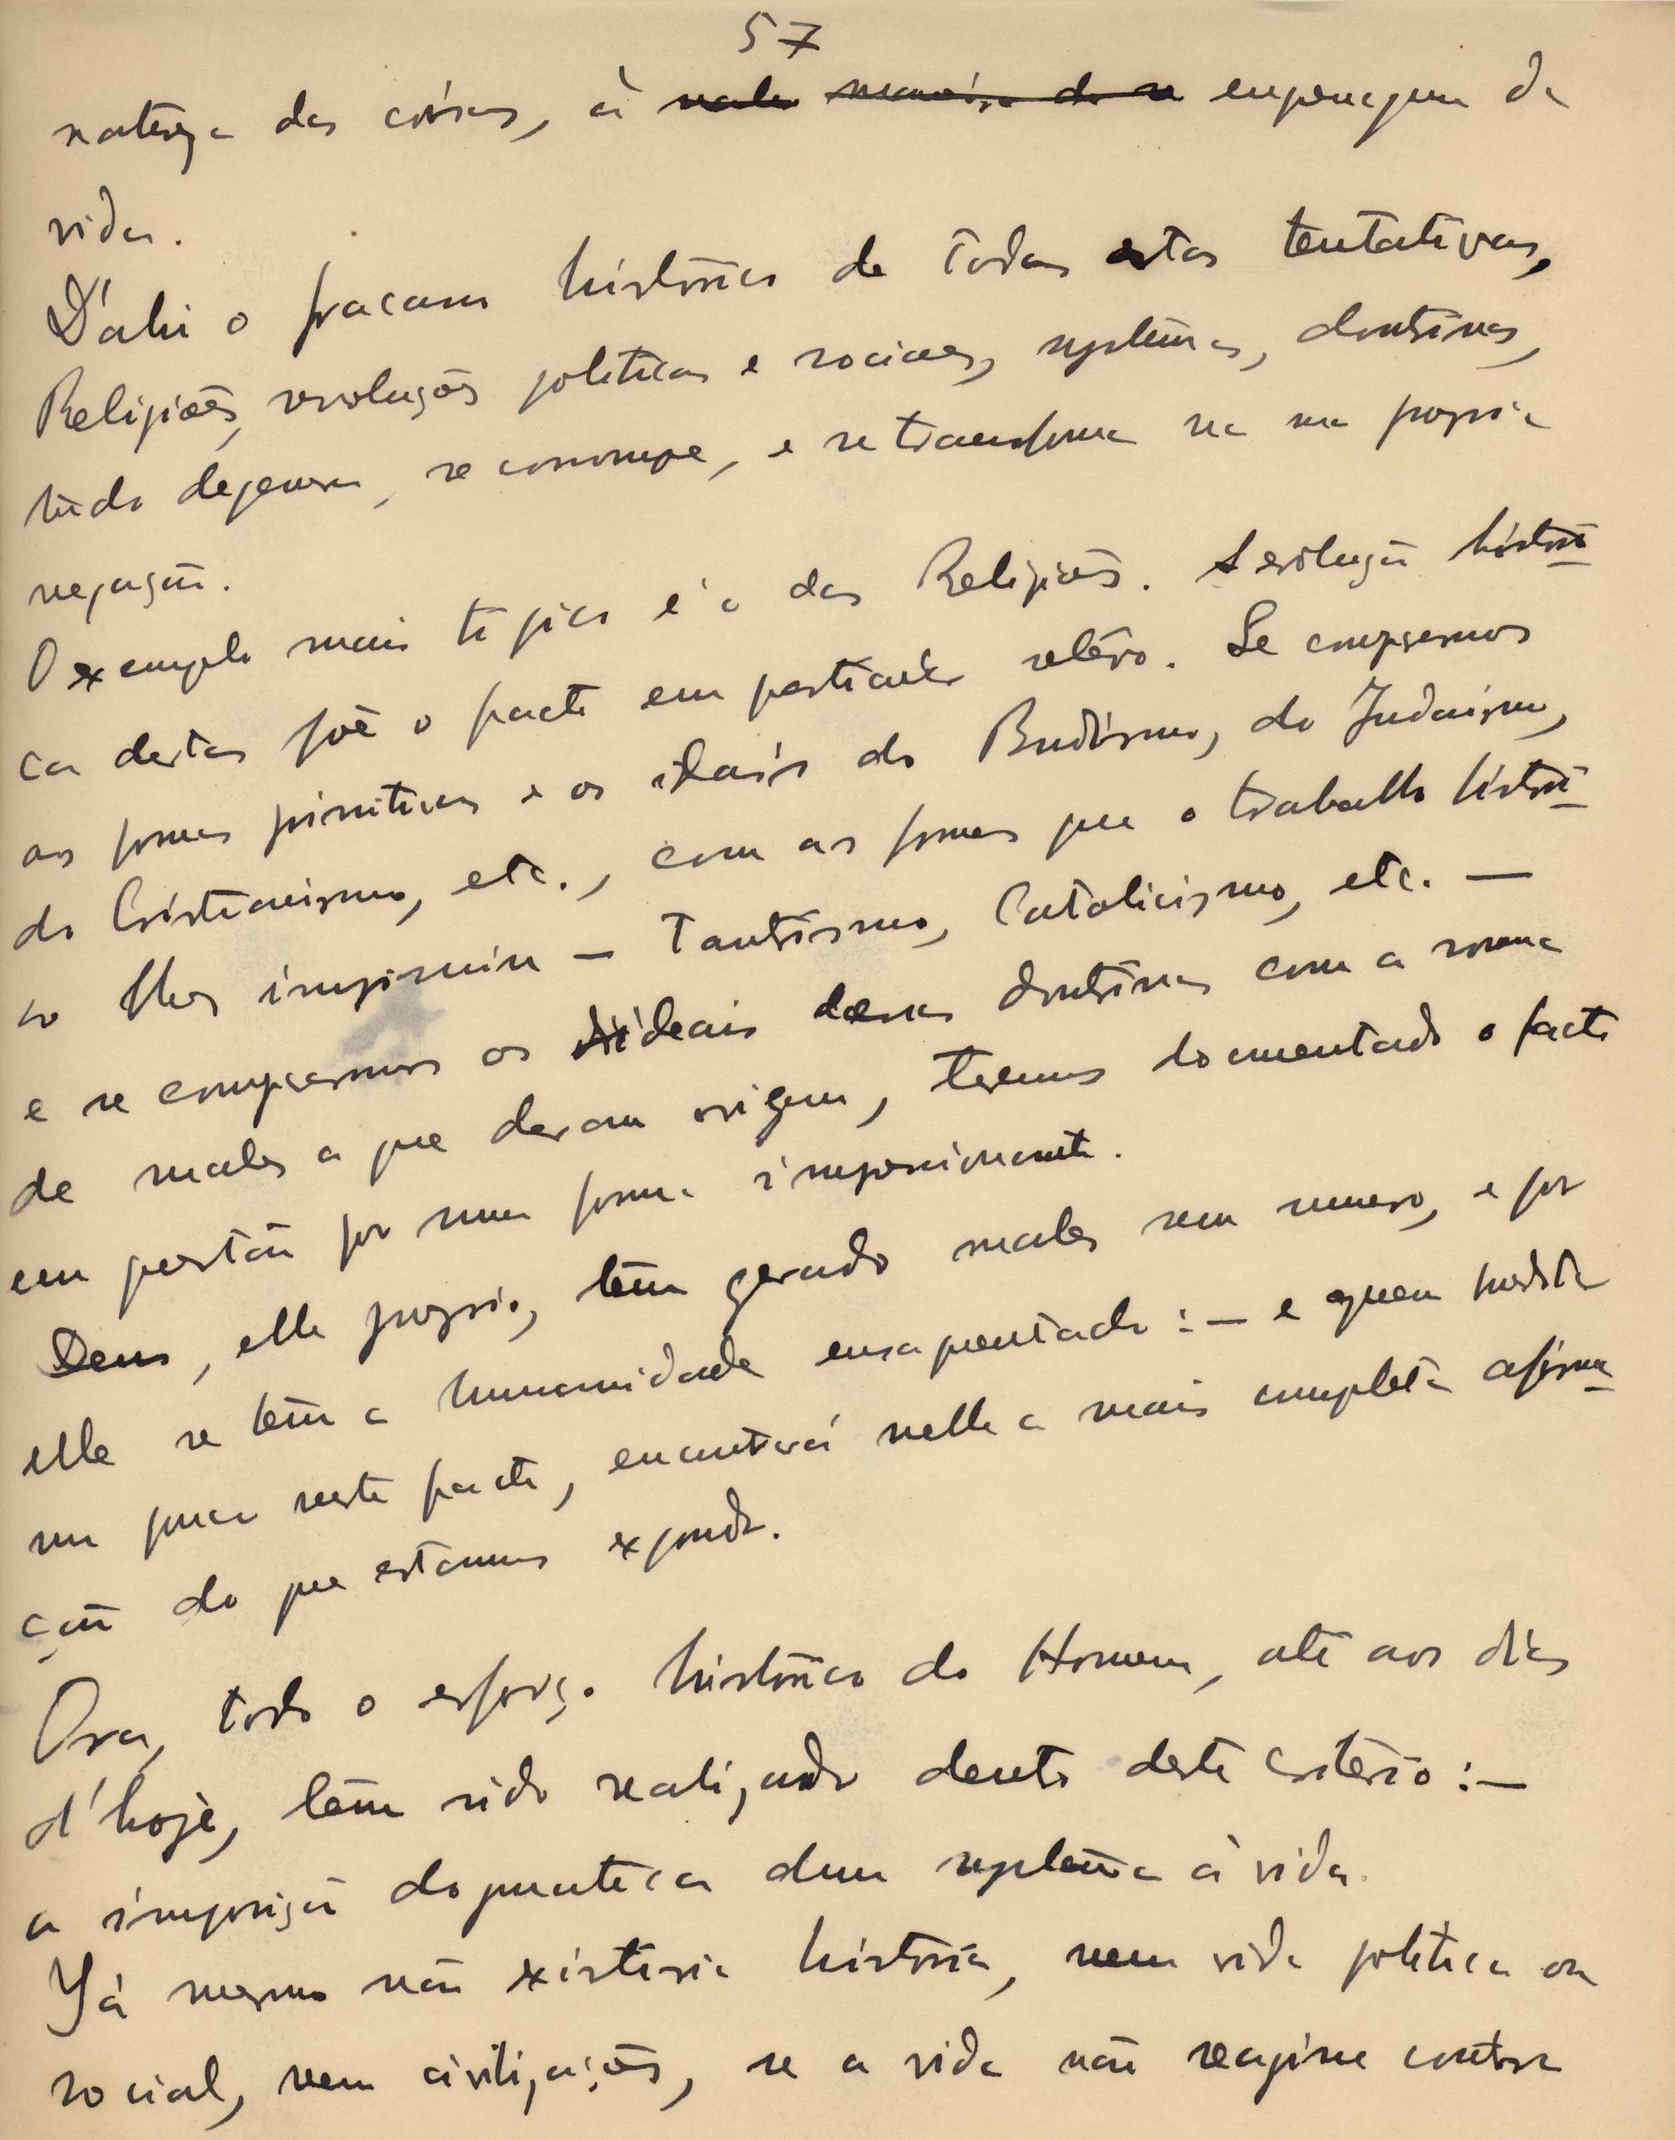 57
natureza das coisas, à engrenagem da
vida.
D'ahi o fracasso histórico de todas estas tentativas,
Religiões, revoluções politicas e sociaes, systemas, doutrinas,
tudo degenera, se corrompe, e se transforma na sua propria
negação.
O exemplo mais tipico é o das Religiões. A evolução históri-
ca destas põe o facto em particular relêvo. Se compararmos
as formas primitivas e os ideais do Budismo, do Judaismo,
do Cristianismo, etc., com as formas que o trabalho históri-
co lhes imprimiu — Tantrismo, Catolicismo, etc. —
e se compararmos os ideais dessas doutrinas com a soma
de males a que deram origem, teremos documentado o facto
em questão por uma forma impressionante.
Deus, elle proprio, têm gerado males sem numero, e por
elle se têm a humanidade ensanguentado: — e quem medite
um pouco neste facto, encontrará nelle a mais completa afirma-
ção do que estamos expondo.
Ora, todo o esforço histórico do Homem, até aos dias
d'hoje, têm sido realizado dentro deste critério: —
a imposição dogmatica dum systema à vida.
Já mesmo não existiria história, nem vida politica ou
social, nem civilizações, se a vida não reagisse contra